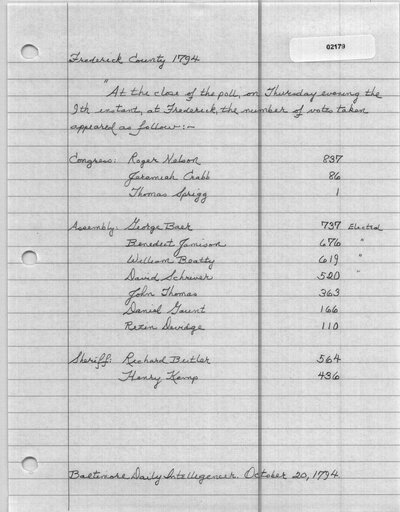 02179
Frederick County 1794
"At the close of the poll, on Thursday evening the
9th instant, at Frederick, the number of votes taken
appeared as follow:-
Congress: Roger Nelson 837
Jeremiah Crabb 86
Thomas Sprigg 1
Assembly: George Baer 737 Elected
Benedict Jamison 676 "
William Beatty 619 "
David Schriver 520 "
John Thomas 363
Daniel Gaunt 166
Rezin Davidge 110
Sheriff: Richard Butler 564
Henry Kemp 436
Baltimore Daily Intelligencer. October 20, 1794